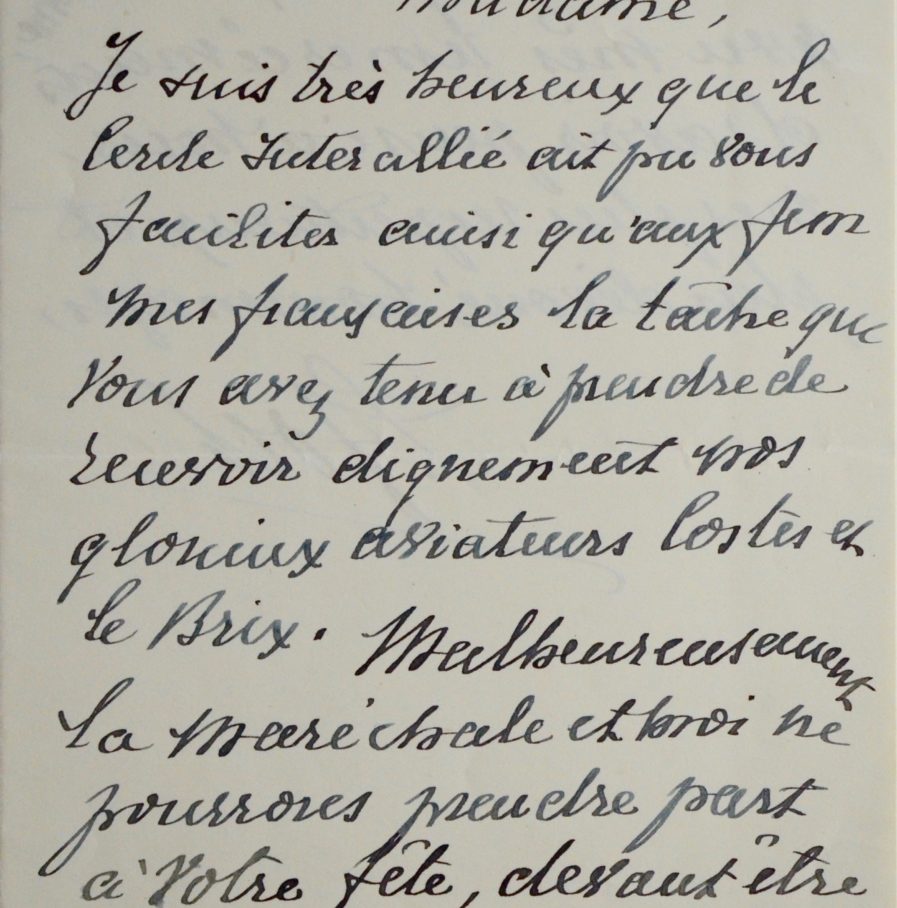 Madame,
Je suis très heureux que le
Cercle Interallié ait pu vous
faciliter ainsi qu'aux fem
mes françaises la tâche que
vous avez tenu à prendre de
recevoir dignement nos
glorieux aviateurs Costes et
le Brix. Malheureusement
la Maréchale et moi ne
pourrons prendre part
à votre fête, devant être